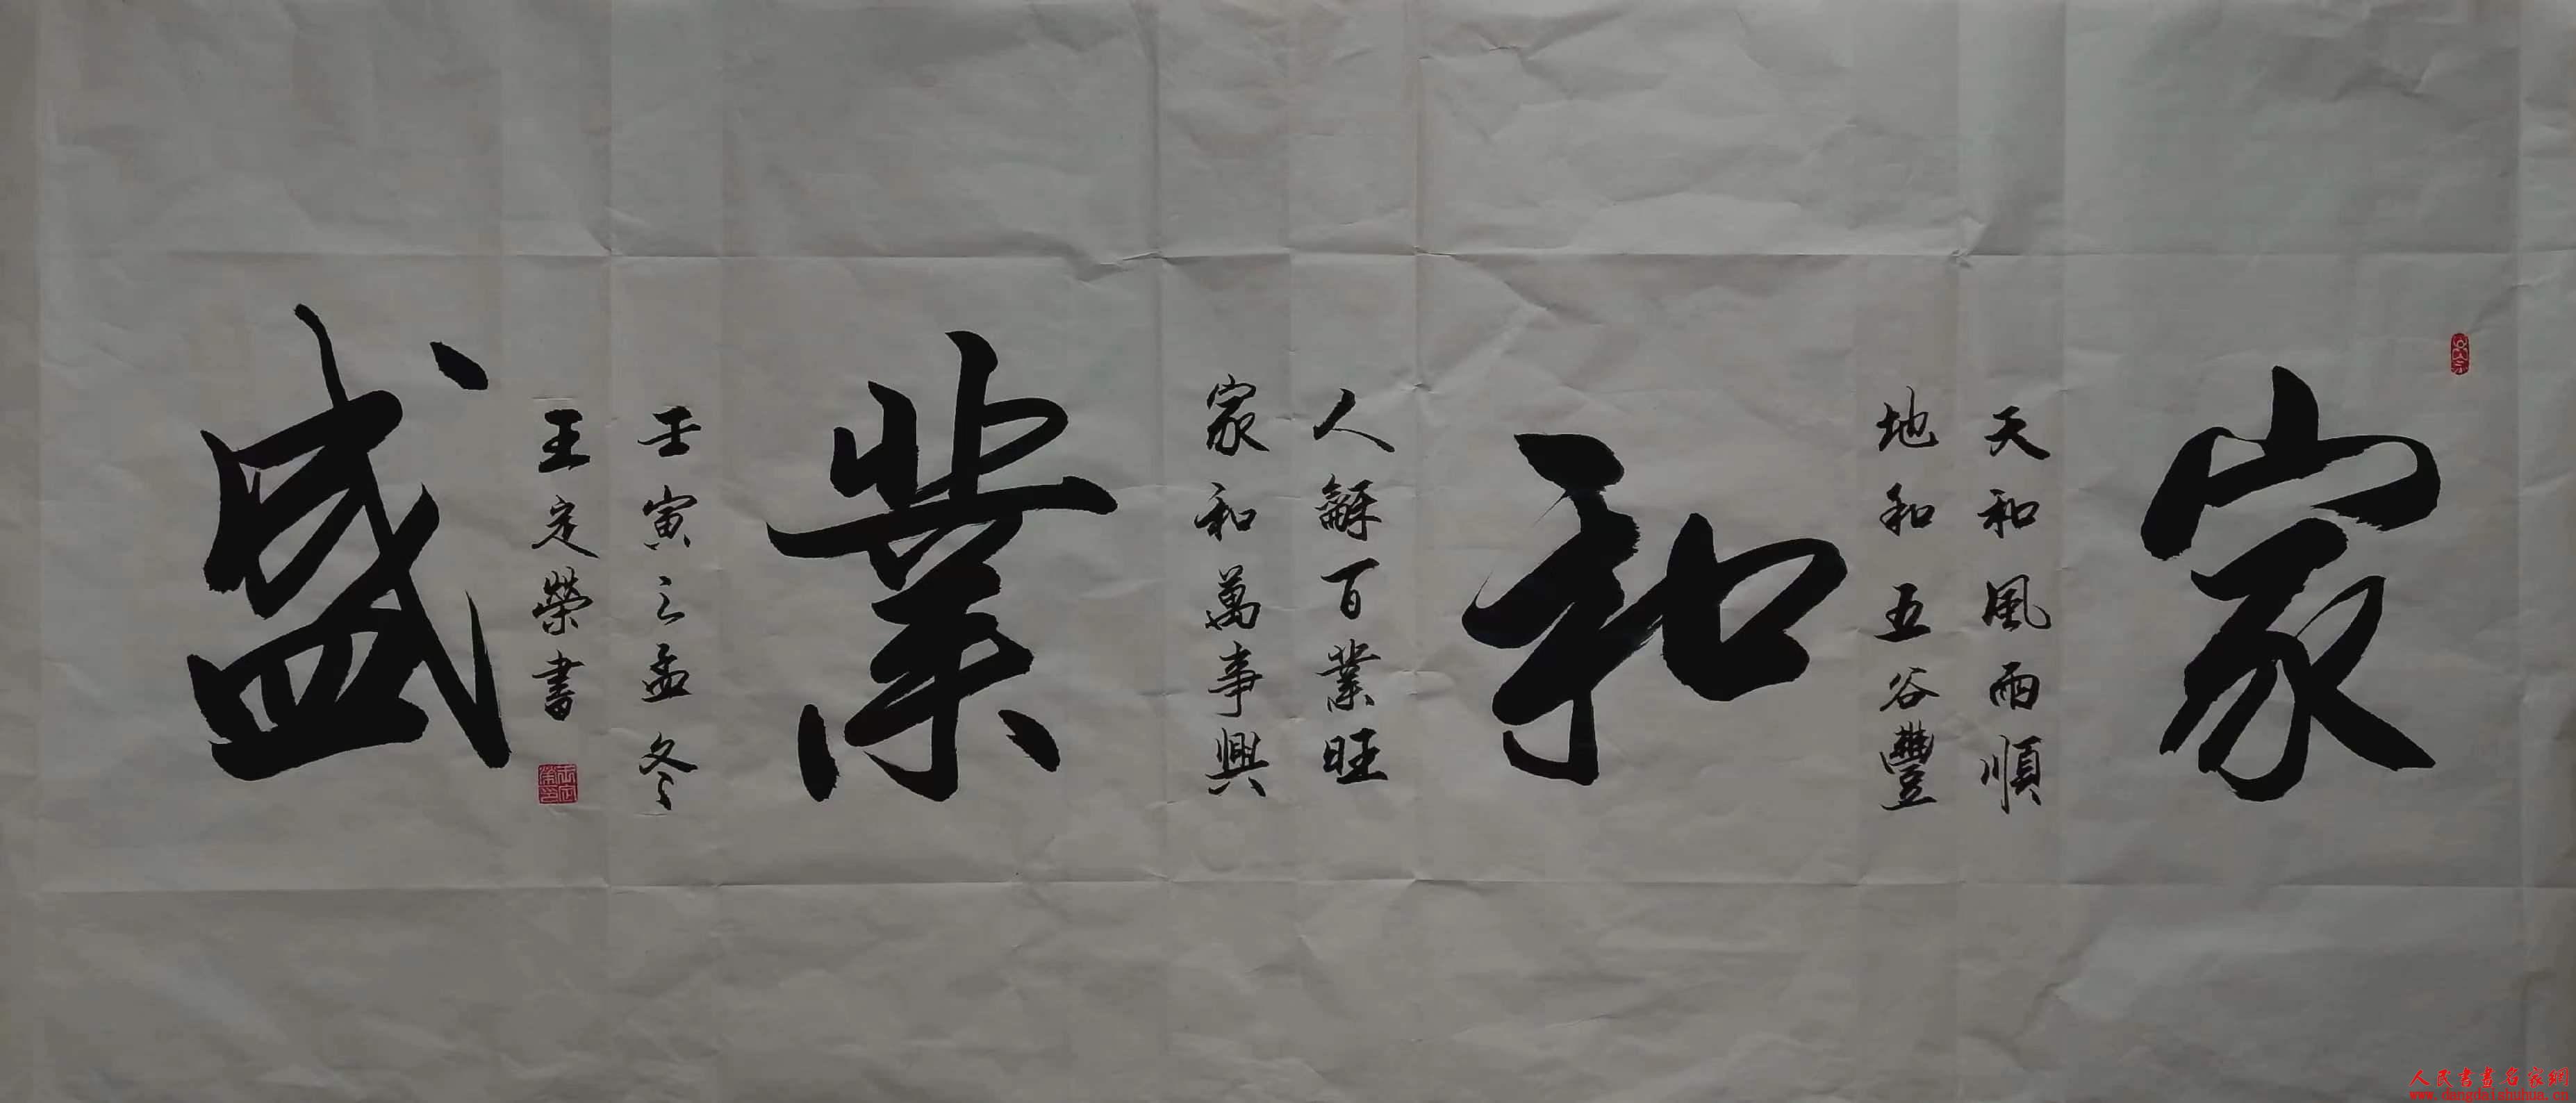 家
天和風雨順
地和五谷豐
和
人龢百業旺
家和萬事興
業
壬寅之孟冬
王定榮書
盛
人民書畫名家網
www.dangdaishuhua.cn